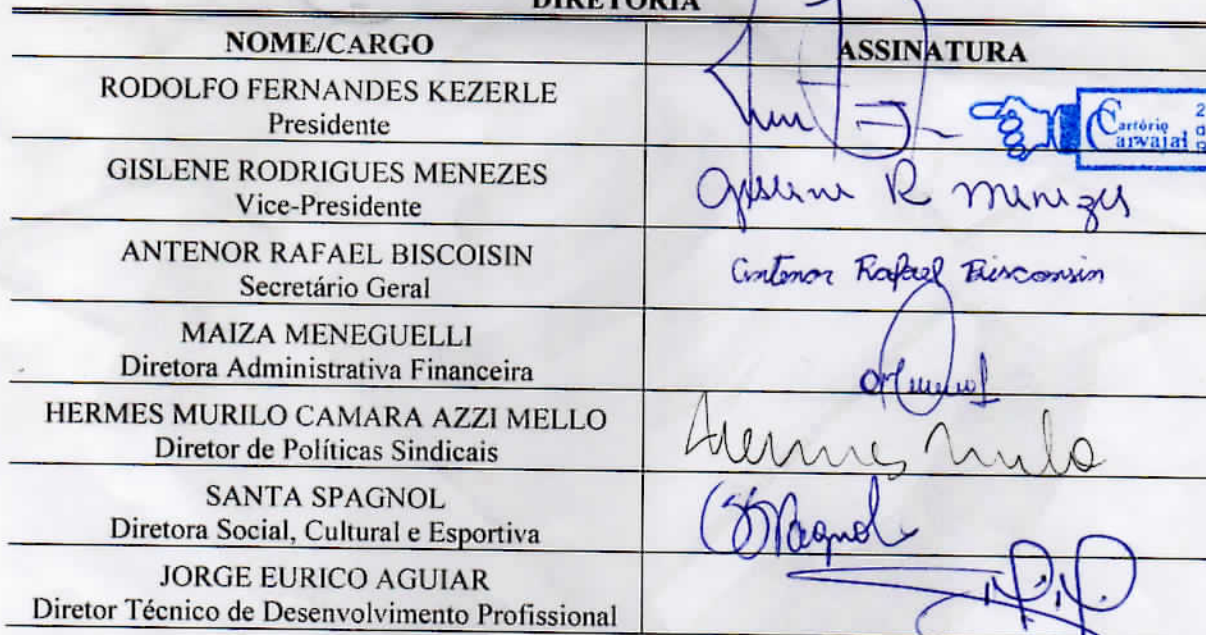 DIRETORIA
NOME/CARGO ASSINATURA
RODOLFO FERNANDES KEZERLE
Presidente
Cartório
Carvajal
GISLENE RODRIGUES MENEZES
Vice-Presidente
Gislene R Menezes
ANTENOR RAFAEL BISCOISIN
Secretário Geral
Antenor Rafael Bisconsin
MAIZA MENEGUELLI
Diretora Administrativa Financeira
HERMES MURILO CAMARA AZZI MELLO
Diretor de Políticas Sindicais
Hermes Murilo
SANTA SPAGNOL
Diretora Social, Cultural e Esportiva
SSpagnol
JORGE EURICO AGUIAR
Diretor Técnico de Desenvolvimento Profissional